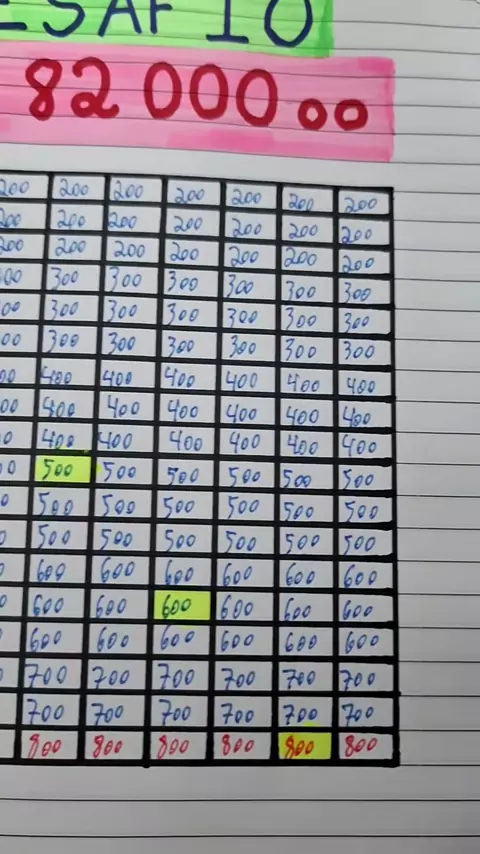 ESAFIO
82 000 00
200 200 200 200 200 200 200
200 200 200 200 200 200 200
200 200 200 200 200 200 200
300 300 300 300 300 300
300 300 300 300 300 300
300 300 300 300 300 300
400 400 400 400 400 400
400 400 400 400 400 400
400 400 400 400 400 400
500 500 500 500 500 500
500 500 500 500 500 500
500 500 500 500 500 500
600 600 600 600 600 600
600 600 600 600 600 600
600 600 600 600 600 600
700 700 700 700 700 700
700 700 700 700 700 700
800 800 800 800 800 800